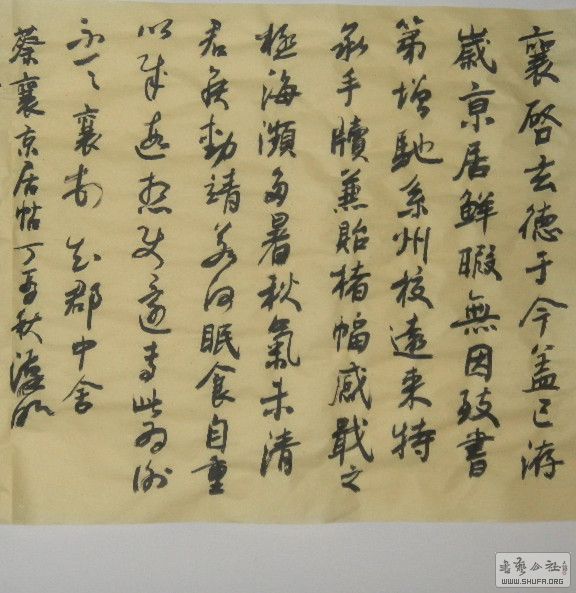 襄啓去德于今盖已游
歲京居鮮暇無因致書
第增馳系州校遠来特
承手牘兼貽楮幅感戢之
極海瀕多暑秋氣未清
君侯動靖若何眠食自重
以来遠想使還専此為謝
不一一襄南知郡中舍
蔡襄京居帖丁吾秋
書藝公社
WWW.SHUFA.ORG